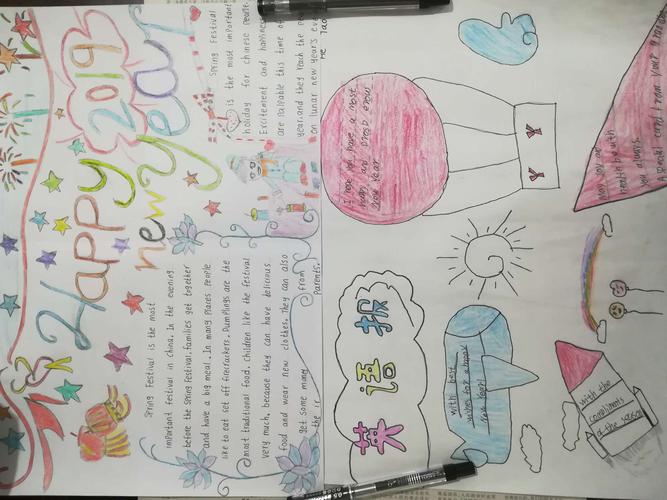 Happy
2019
new year
Spring Festival is the most
important festival in China. In the evening
before the Spring Festival, families get together
and have a big meal. In many places people
like to eat set off firecrackers. Dumplings are the
most traditional food. Children like the festival
very much, because they can have delicious
food and wear new clothes. They can also
get some money from
their parents.
Spring Festival
is the most important
holiday for chinese people.
Excitement and happiness
are palpable this time of
year, and they reach the
on lunar new year's eve
英语报
I hope you have a most
happy and
New Year
Y
Y
with best
wishes for a happy
new year!
May joy and
health be with
you always.
with the
compliments
of the season